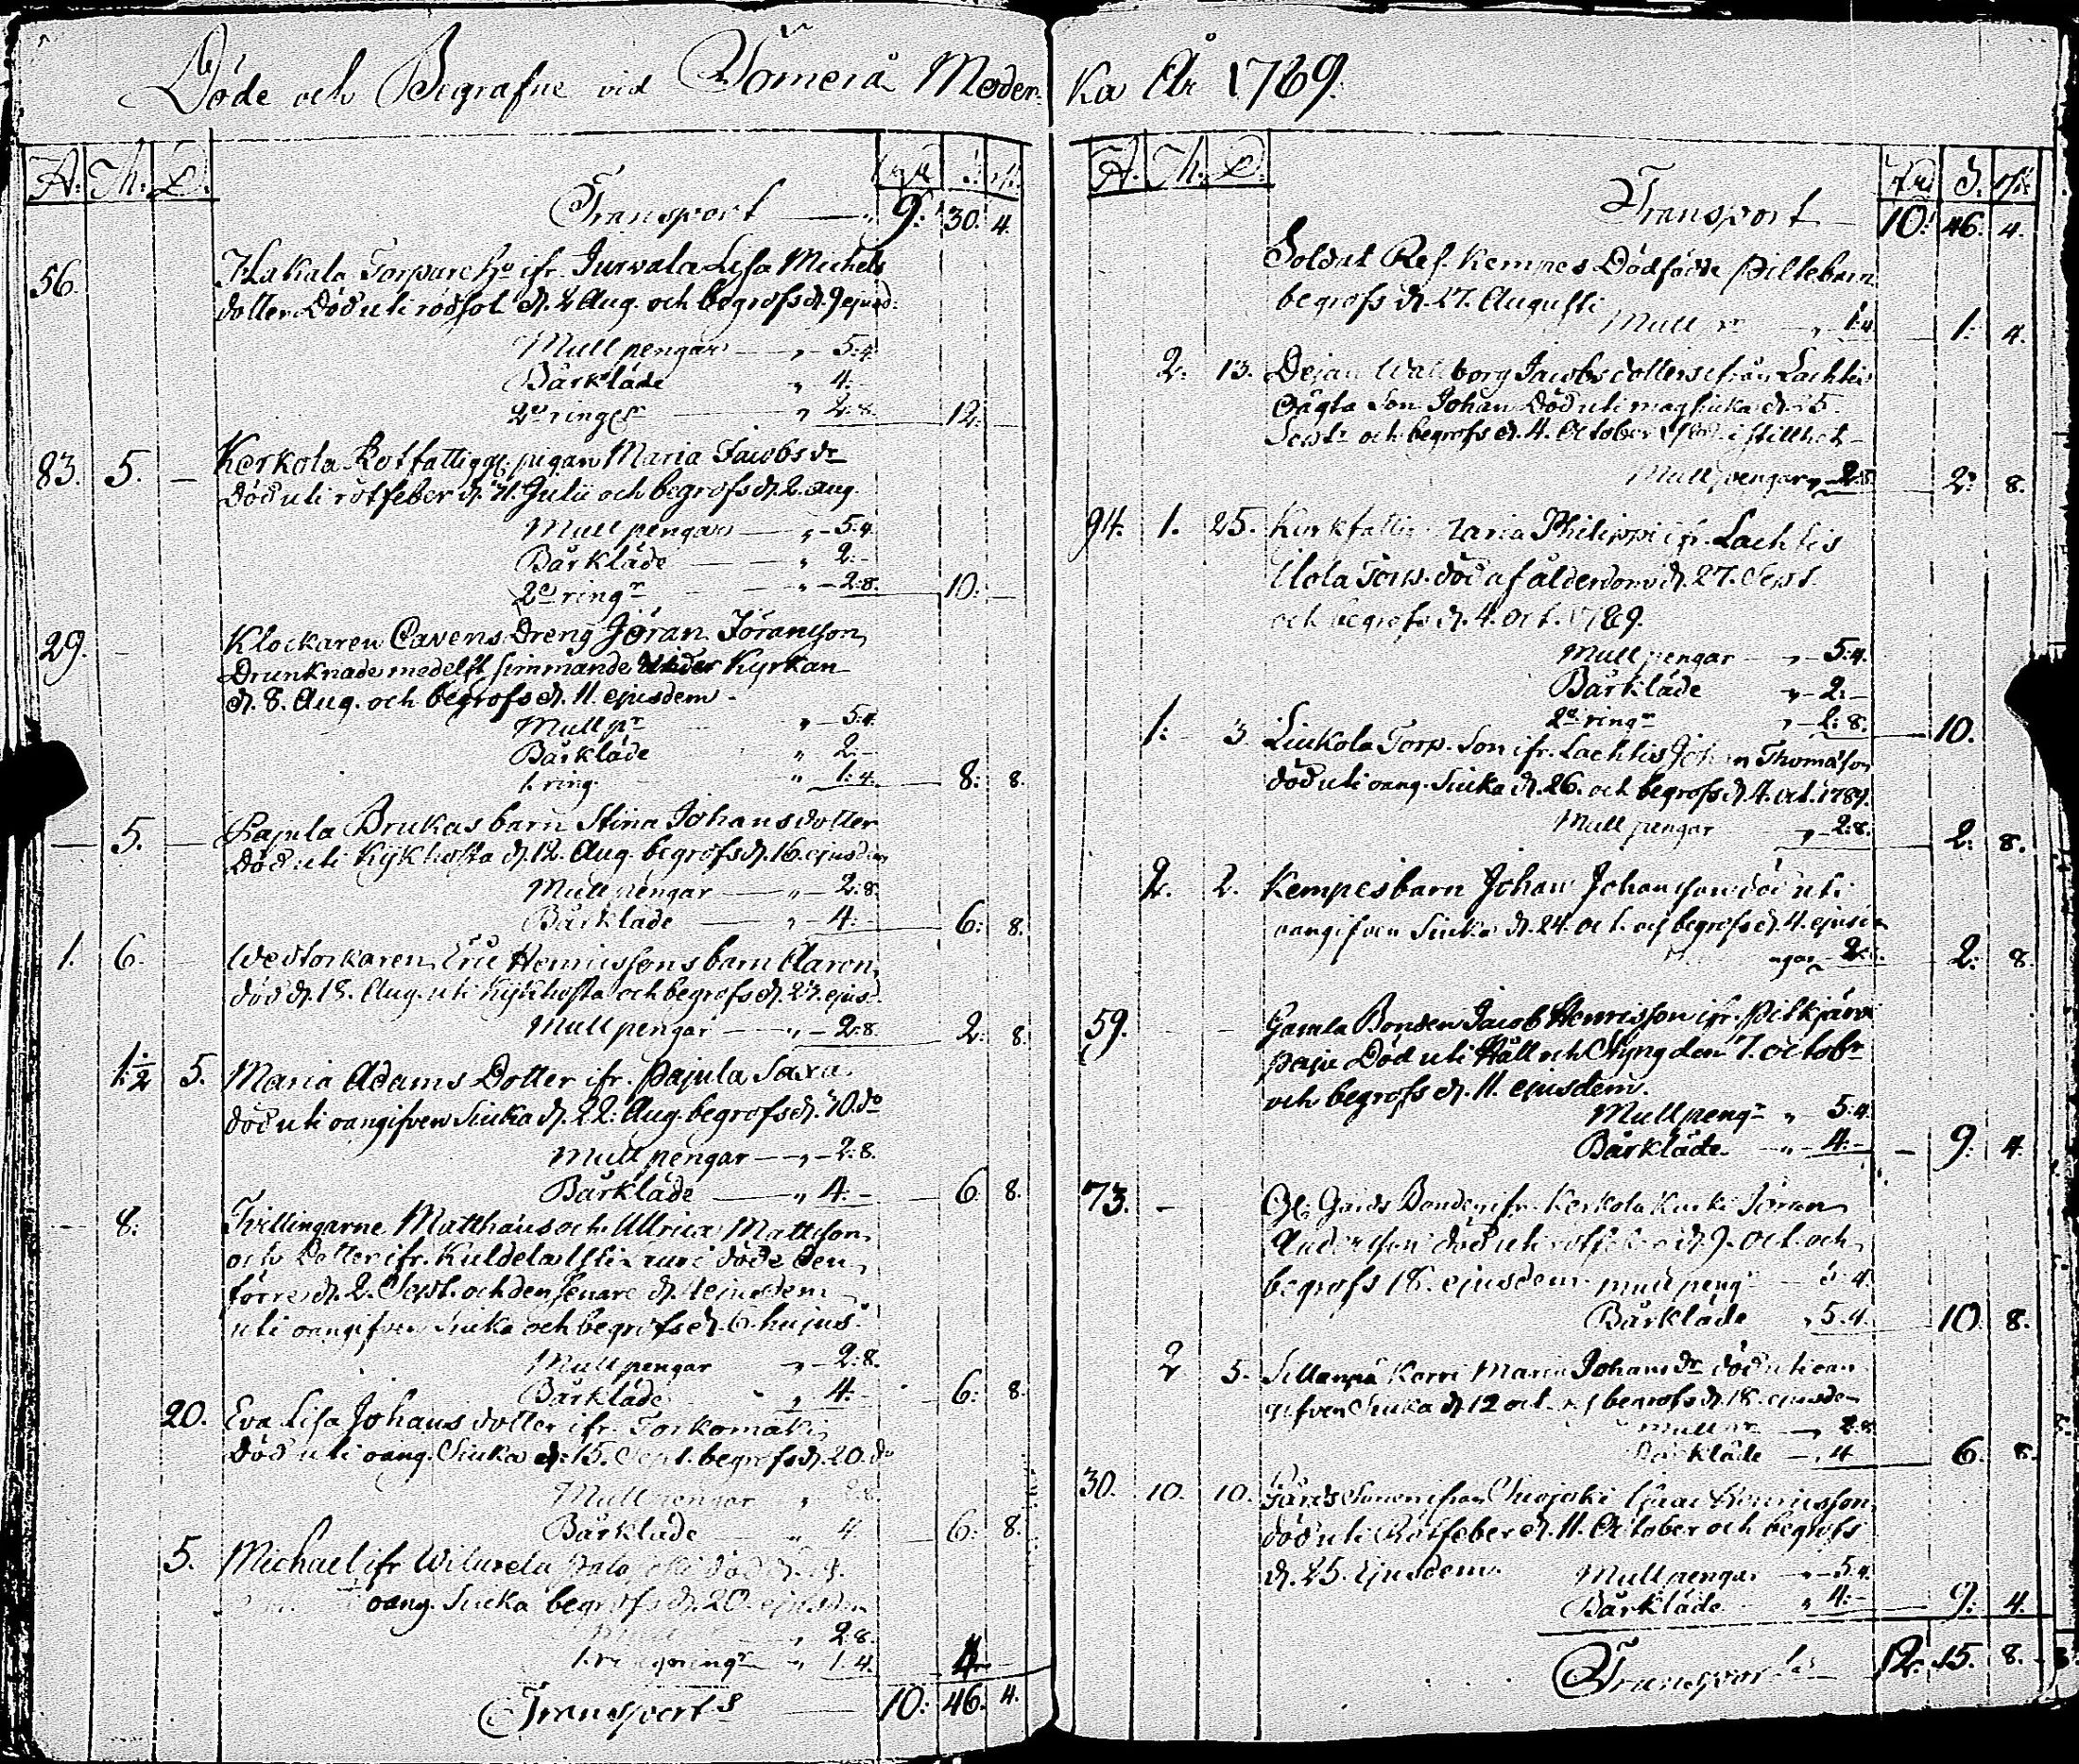 Döde och Begrafne vid Tomerå Moder Ka År 1789.
A. M. D.
Transport 9: 30. 4.
56. Hakala Torpare ho ifr. Jurvala Lisa Michels
dotter Död uti rödsot d. 2 Aug. och begrofs d. 9 ejusd.
Mullpengar 5:4.
Bårkläde 4:-
2e ring 2:8. 12.
83. 5. - Kerkola Rotfattig pigan Maria Jacobs dr
död uti rötfeber d. 31. Julii och begrofs d. 2. aug.
Mullpengar 5:4.
Bårkläde 2:-
2e ringr 2:8. 10: -
29. - Klockaren Cavens Dreng Jöran Göransson
Drunknade medelst simmande under Kyrkan
d. 8. Aug. och begrofs d. 11. ejusdem.
Mull pr 5:4.
Bårkläde 2:-
1. ring 1:4. 8: 8.
- 5. - Pajula Brukas barn Stina Johansdotter
Död uti Kikhosta d. 12. Aug. begrofs d. 16. ejusdem
Mullpengar 2:8.
Bårkläde 4:- 6: 8.
1. 6. Eric Henricssons barn Aaron
död d. 18. Aug. uti Kikhosta och begrofs d. 23. ejusd.
Mullpengar 2:8. 2: 8.
1 1/2 5. Maria Adams Dotter ifr. Pajula Saxa.
död uti oangifven Siuka d. 22. Aug. begrofs d. 30. do
Mullpengar 2:8.
Bårkläde 4:- 6: 8.
- 8. Tvillingarne Matthæus och Ullrica Mattsson
och Dotter ifr. Kuldela döde den
förre d. 2. Sept. och den senare d. 4 ejusdem
uti oangifven Siuka och begrofs d. 6. hujus.
Mullpengar 2:8.
Bårkläde 4:- 6: 8.
20. Eva Lisa Johansdotter ifr. Torkomäki
död uti oang. Siuka d. 15. Sept. begrofs d. 20. do
Mullpengar 2:8.
Bårkläde 4. 6: 8.
5. Michael ifr. Wilurela död d.
oang. Siuka begrofs d. 20. ejusdem
2:8.
1:4. 4.
Transport 10: 46. 4.
A. M. D. S.
Transport 10: 46. 4.
Soldat Kempes Dödfödde Piltebarn
begrofs d. 27. Augusti
Mull pr 1:4. 1: 4.
2. 13. Dejan Wallborg Jacobsdotters ifrån Lachtis
Oägta Son Johan Död uti magsiuka d. 25.
Sept. och begrofs d. 4. October i stillhet
Mullpengar 2:8. 2: 8.
94. 1. 25. Kyrkfattig Maria Philippi ifr. Lachtis
Uola Torp. död af ålderdom d. 27. Sept.
och begrofs d. 4. Oct. 1789.
Mullpengar 5:4.
Bårkläde 2:-
2e ringr 2:8. 10.
1. 3. Liukola Torp. Son ifr. Lachtis Johan Thomasson
död uti oang. Siuka d. 26. och begrofs d. 4. Oct. 1789.
Mullpengar 2:8. 2: 8.
2. 2. Kempes barn Johan Johansson död uti
oangifven Siuka d. 24. oct. och begrofs d. 4. ejusdem
2: 8.
59. Gamla Bonden Jacob Henricsson ifr. Pitkjärvi
Paju Död uti Håll och Styng den 7. octobr
och begrofs d. 11. ejusdem.
Mullpengr 5:4.
Bårkläde 4:- 9: 4.
73. - Gl. Gårds Bonden ifr. Kerkola Kurki Jöran
Andersson död uti rötfeber d. 9. oct. och
begrofs 18. ejusdem. mullpengr 5:4.
Bårkläde 5:4. 10. 8.
2 5. Sillanpä Karri Maria Johansdr död uti oan
gifven Siuka d. 12 oct. och begrofs d. 18. ejusdem
Mull pr 2:8.
Bårkläde 4. 6. 8.
30. 10. 10. Gårds Sonen ifrån Henricsson
död uti Rötfeber d. 11. October och begrofs
d. 25. Ejusdem. Mullpengar 5:4.
Bårkläde 4:- 9: 4.
Transport 12. 15. 8.